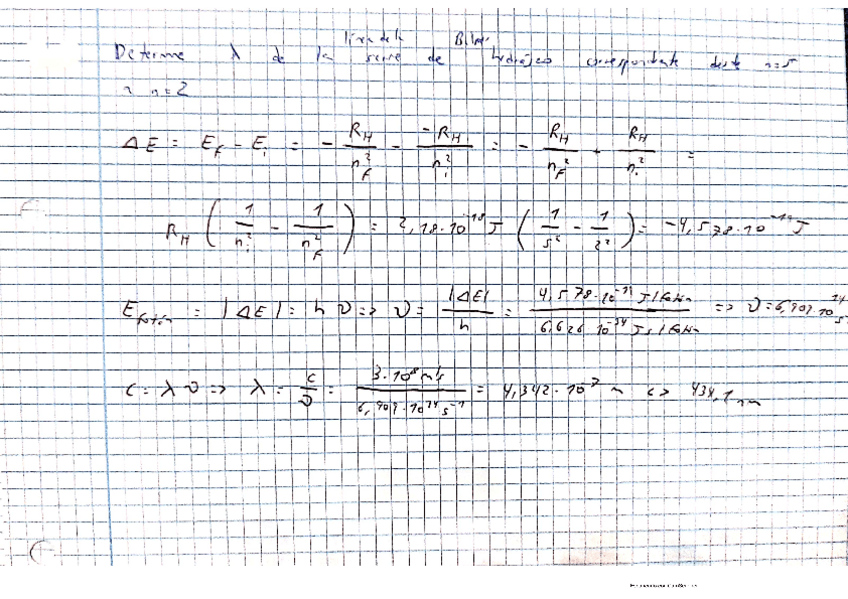 línea de la Balmer
Determine λ de la serie de hidrógeno correspondiente desde n=5
a n=2
ΔE = E_f - E_i = - R_H/n_f² - -R_H/n_i² = - R_H/n_f² + R_H/n_i² =
R_H (1/n_i² - 1/n_f²) = 2,18·10⁻¹⁸ J (1/5² - 1/2²) = -4,578·10⁻¹⁹ J
E_fotón = |ΔE| = h ν => ν = |ΔE|/h = 4,578·10⁻¹⁹ J/fotón / 6,626 10⁻³⁴ Js/fotón => ν = 6,909·10¹⁴
c = λ ν => λ = c/ν = 3·10⁸ m/s / 6,909·10¹⁴ s⁻¹ = 4,342·10⁻⁷ m <> 434,1 nm